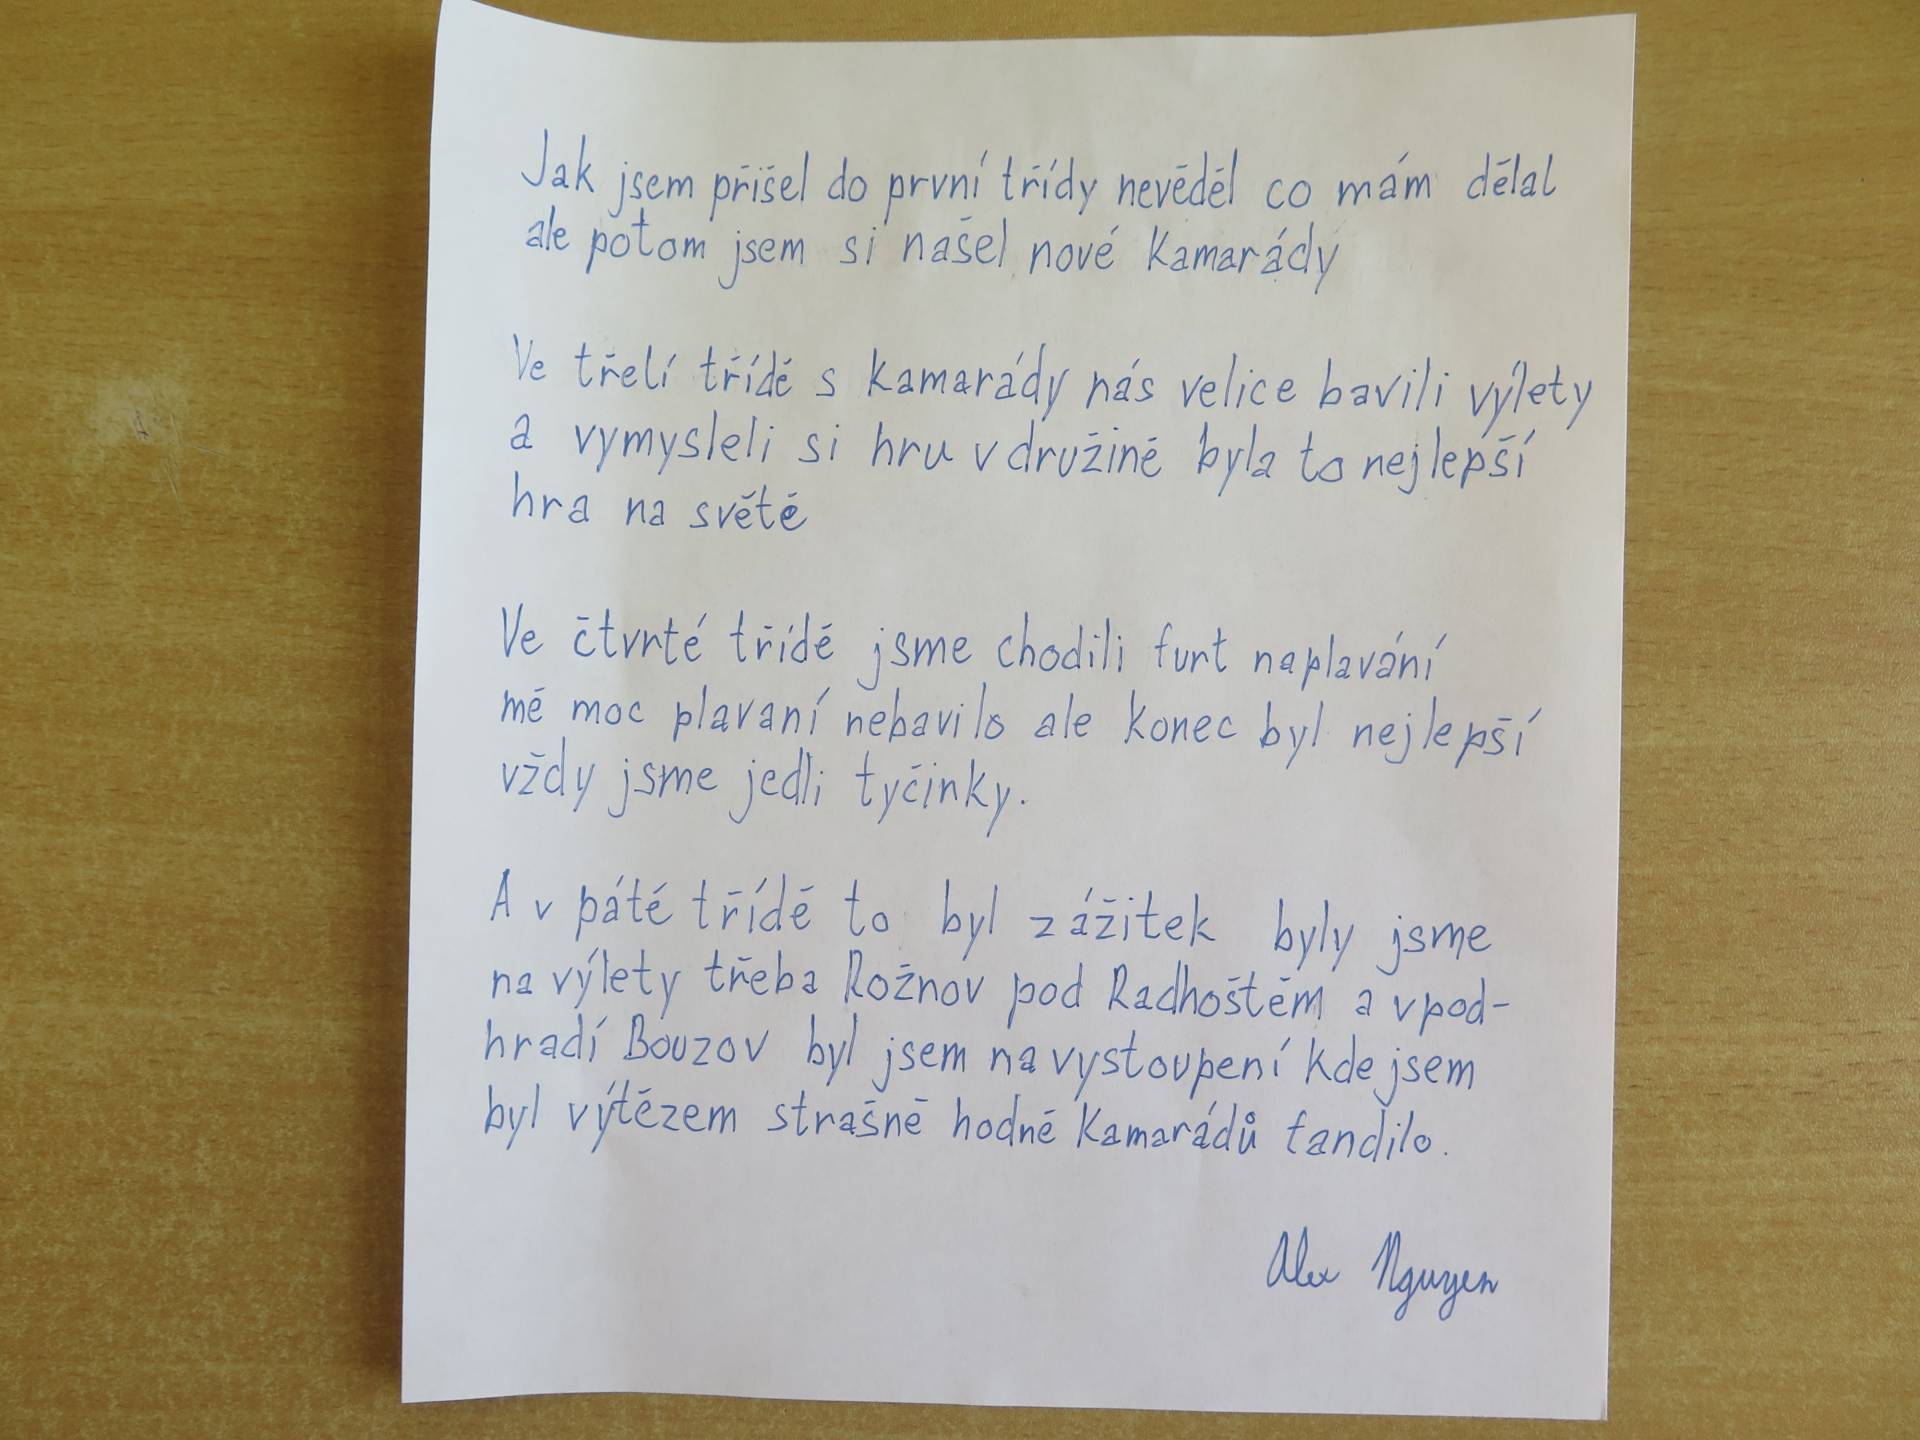 Jak jsem přišel do první třídy nevěděl co mám dělal
ale potom jsem si našel nové kamarády
Ve třelí třídě s kamarády nás velice bavili výlety
a vymysleli si hru v družině byla to nejlepší
hra na světě
Ve čtvrté třídě jsme chodili furt naplavání
mě moc plavaní nebavilo ale konec byl nejlepší
vždy jsme jedli tyčinky.
A v páté třídě to byl zážitek byly jsme
na výlety třeba Rožnov pod Radhoštěm a v pod-
hradí Bouzov byl jsem na vystoupení kde jsem
byl výtězem strašně hodně kamarádů fandilo.
Alex Nguyen